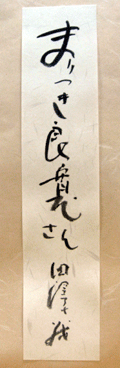 まりつき良寛さん